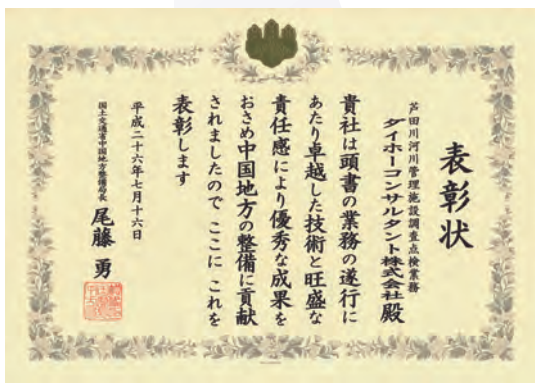 表彰状
芦田川河川管理施設調査点検業務
ダイホーコンサルタント株式会社殿
貴社は頭書の業務の遂行に
あたり卓越した技術と旺盛な
責任感により優秀な成果を
おさめ中国地方の整備に貢献
されましたので ここに これを
表彰します
平成二十六年七月十六日
国土交通省中国地方整備局長 尾藤 勇